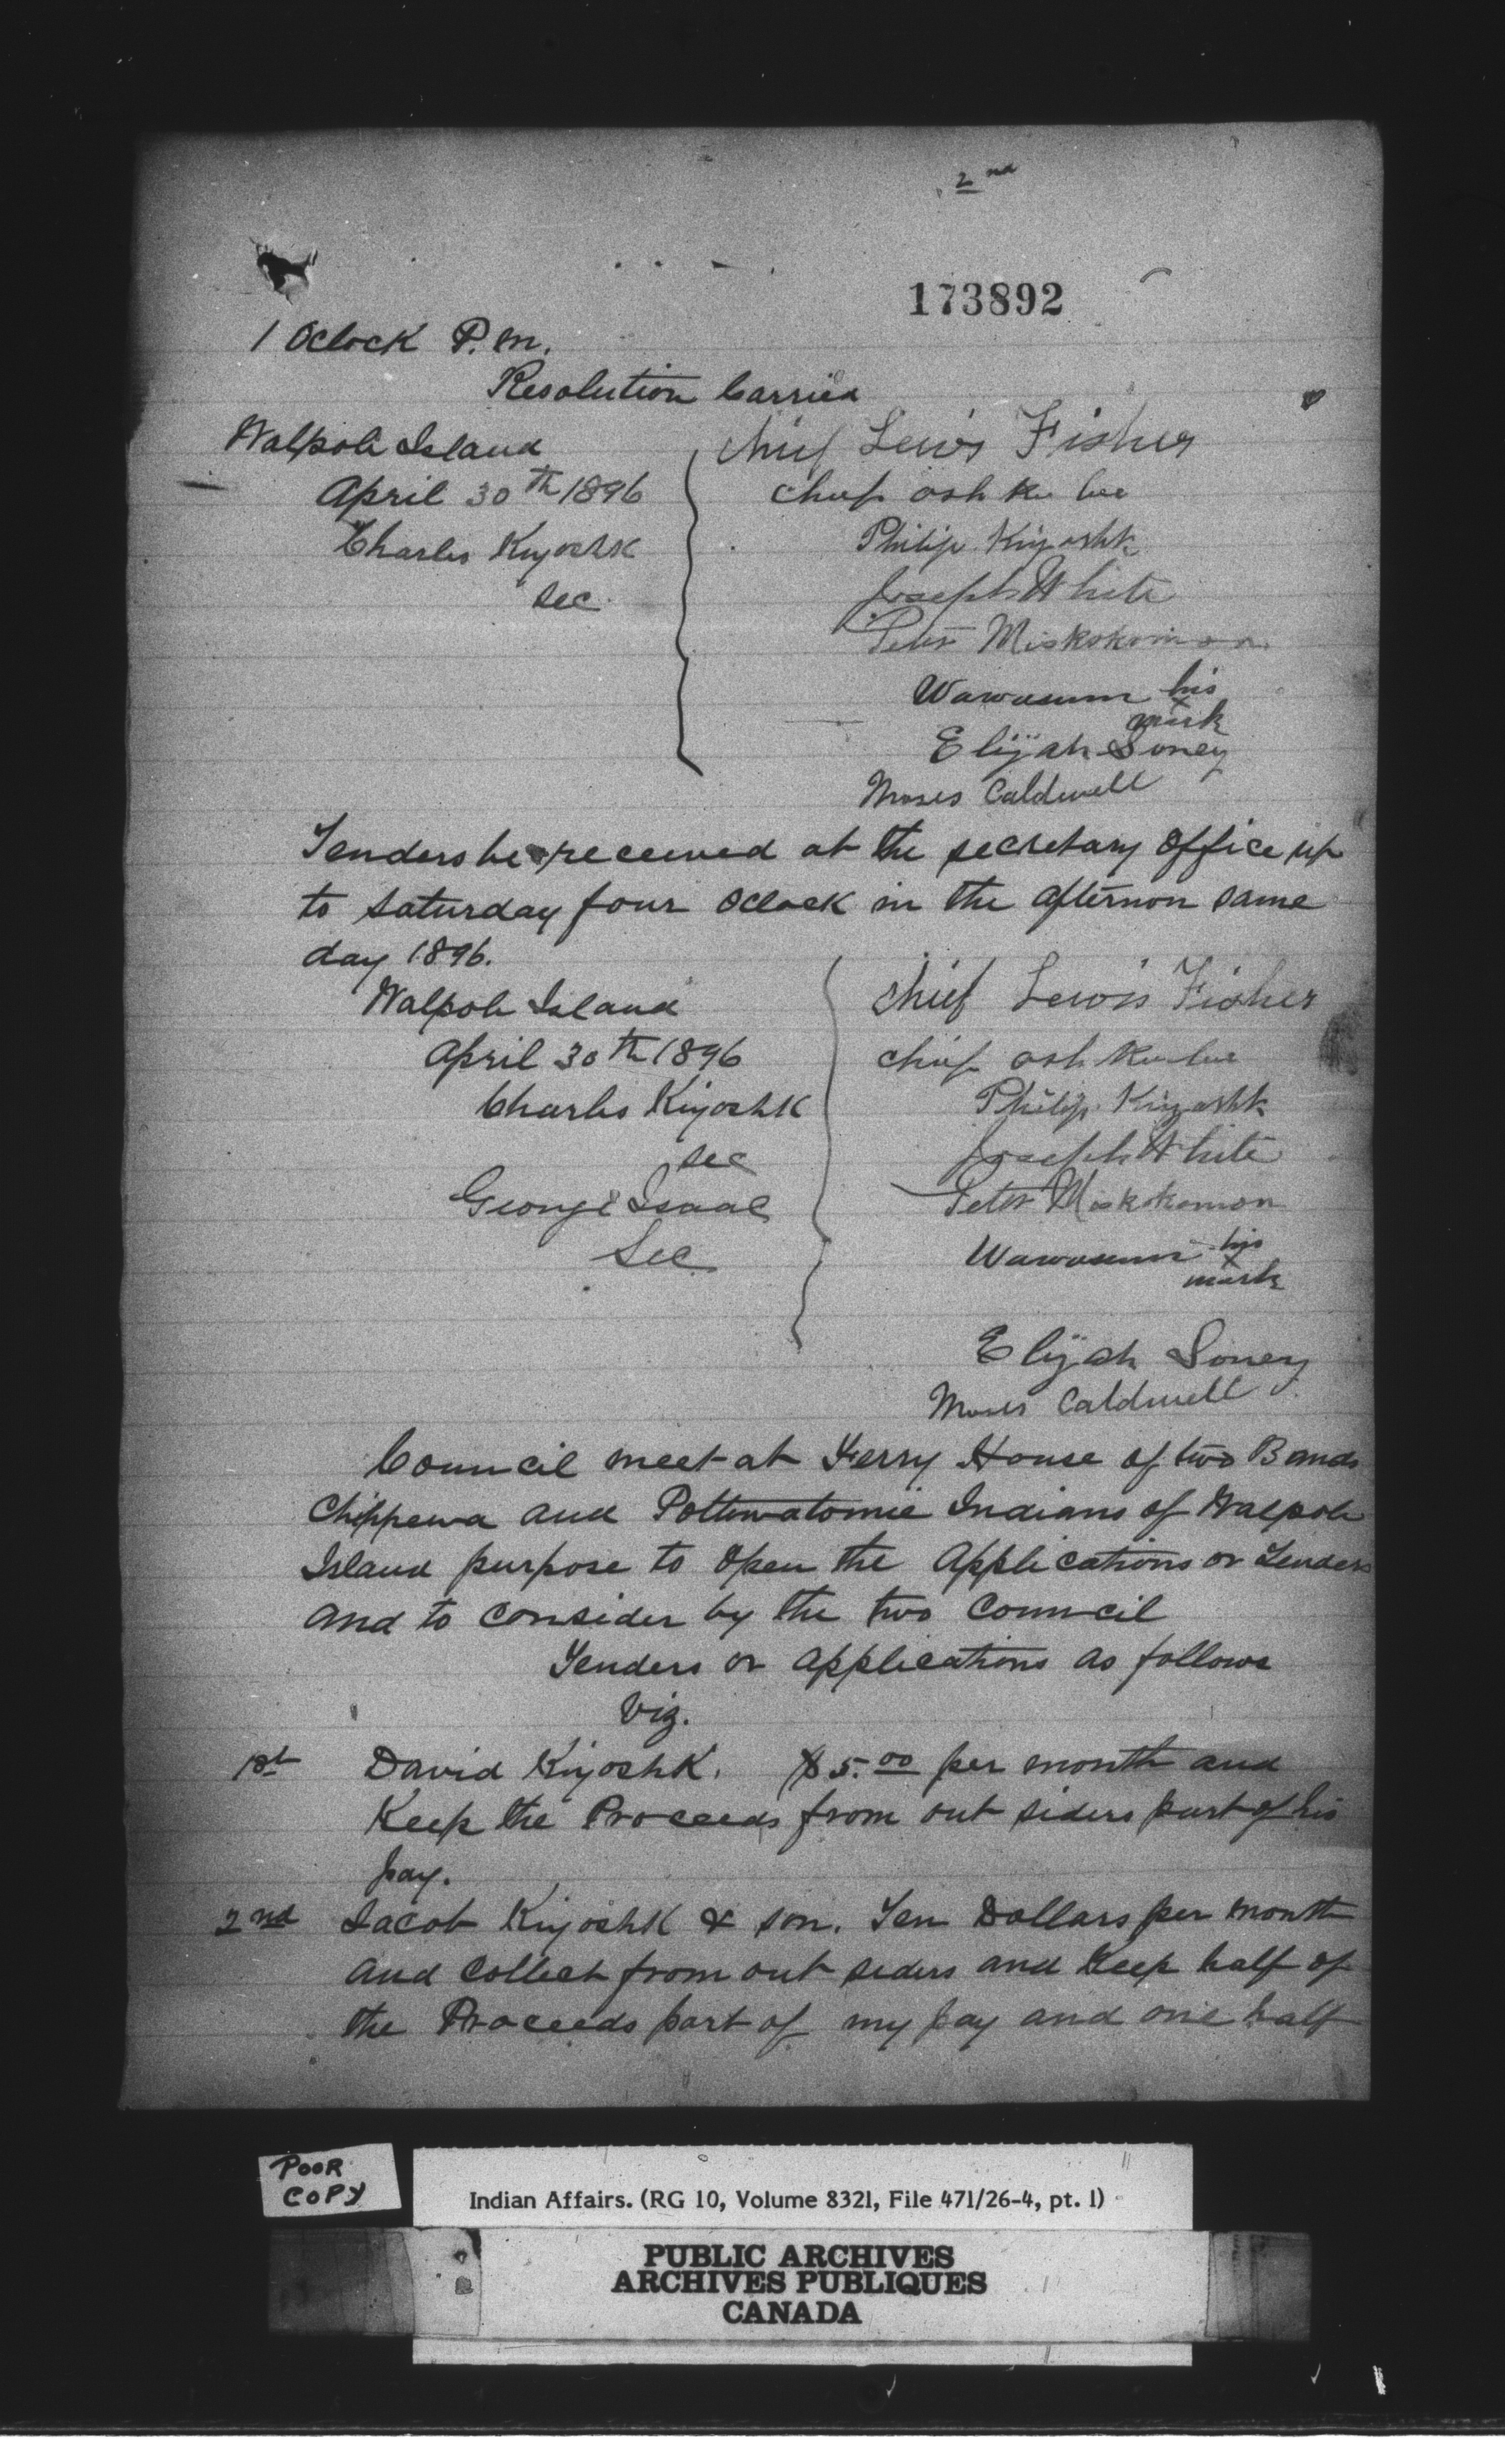 2nd
173892
1 Oclock P.m.
Resolution Carried
Walpole Island
April 30th 1896
Charles Kiyoshk
Sec.
Chief Lewis Fisher
Chief ash Ke bee
Philip Kiyoshk
Joseph White
Peter Miskokomon
Wawasum his
x
mark
Elijah Soney
Moses Caldwell
Tenders be received at the secretary office up
to Saturday four Oclock in the afternon same
day 1896.
Walpole Island
April 30th 1896
Charles Kiyoshk
Sec
George Isaac
Sec
Chief Lewis Fisher
Chief ash Ke bee
Philip Kiyoshk
Joseph White
Peter Miskokomon
Wawasum his
x
mark
Elijah Soney
Moses Caldwell
Council meet at Ferry House of two Bands
Chippewa and Pottewatomie Indians of Walpole
Island purpose to open the Applications or Tenders
and to consider by the two Council
Tenders or applications as follows
Viz.
1st David Kiyoshk. $5.00 per month and
Keep the Proceeds from out siders part of his
pay.
2nd Jacob Kiyoshk & son. Ten Dollars per month
and collect from out siders and keep half of
the Proceeds part of my pay and one half
POOR
COPY
Indian Affairs. (RG 10, Volume 8321, File 471/26-4, pt. 1)
PUBLIC ARCHIVES
ARCHIVES PUBLIQUES
CANADA